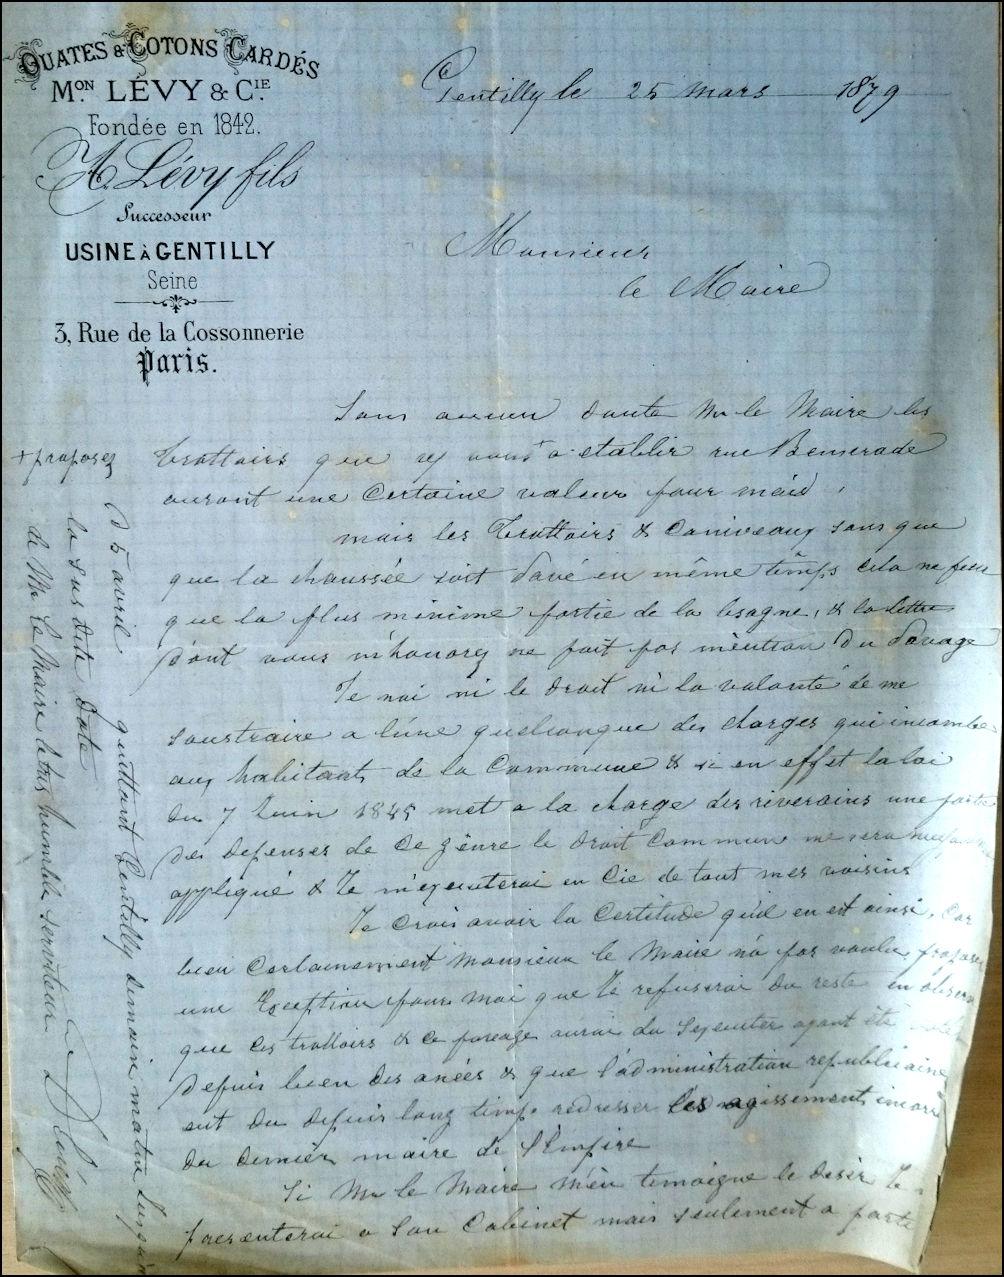 OUATES & COTONS CARDÉS
MON LÉVY & CIE.
Fondée en 1842.
A. Lévy fils
Successeur
USINE À GENTILLY
Seine
3, Rue de la Cossonnerie
Paris.
Gentilly le 25 mars 1879
Monsieur
le Maire
Sans aucun doute Mr le Maire les
trottoirs que vous a établir rue Benserade
auront une certaine valeur pour moi,
mais les trottoirs & caniveaux sans que
que la chaussée soit pavé en même temps cela ne
que la plus minime partie de la besogne, & la lettre
dont vous m'honorez ne fait pas mention du pavage
Je nai ni le droit ni la volonté de me
soustraire a l'une quelconque des charges qui incombe
aux habitants de la Commune & si en effet la loi
du 7 Juin 1845 met a la charge des riverains une partie
des depenses de ce genre le droit commun me sera
appliqué & Je m'executerai en Cie de tout mes voisins
Je crois avoir la certitude qu'il en est ainsi, car
bien certainement Monsieur le Maire n'a pas voulu proposer
une exception pour moi que Je refuserai du reste en
que ces trottoirs & ce pavage aurai du s'executer ayant été
depuis bien des anées & que l'administration republicaine
eut du depuis long temps redresser les agissements
du dernier maire de l'Empire
Si Mr le Maire m'en temoigne le desir Je
presenterai a son Cabinet mais seulement a partir
+ proposez
D 5 avril quittant Gentilly demain matin Jusqu'a
la sus dite date
de Mr le Maire le tres humble serviteur
A Lévy fils